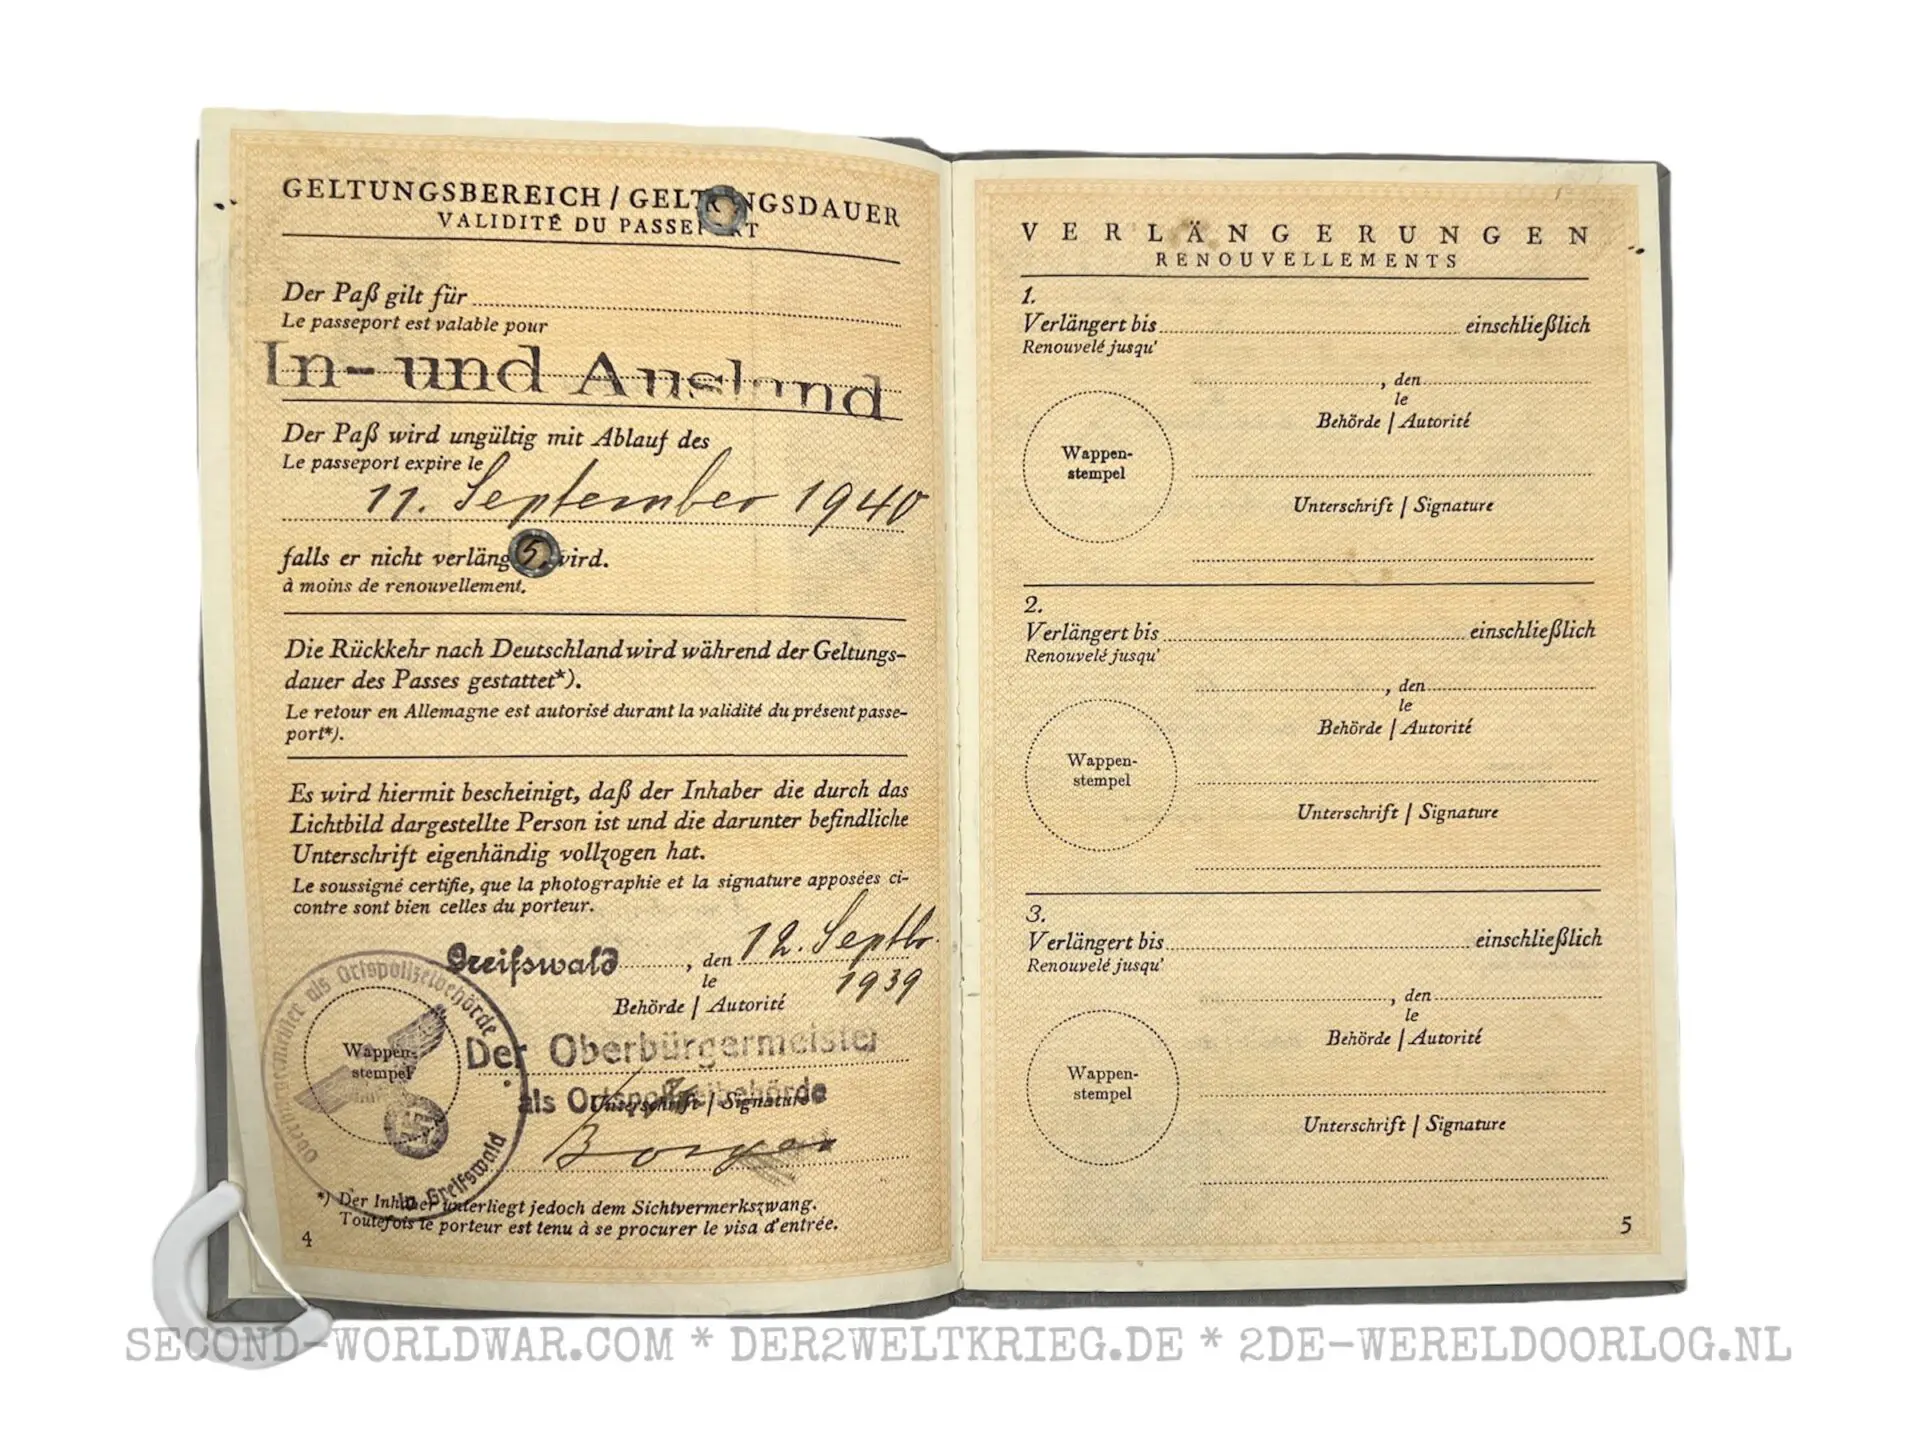 GELTUNGSBEREICH / GELTUNGSDAUER
VALIDITÉ DU PASSEPORT
Der Paß gilt für
Le passeport est valable pour
In- und Ausland
Der Paß wird ungültig mit Ablauf des
Le passeport expire le
11. September 1940
falls er nicht verlängert wird.
5
à moins de renouvellement.
Die Rückkehr nach Deutschland wird während der Geltungs-
dauer des Passes gestattet*).
Le retour en Allemagne est autorisé durant la validité du présent passe-
port*).
Es wird hiermit bescheinigt, daß der Inhaber die durch das
Lichtbild dargestellte Person ist und die darunter befindliche
Unterschrift eigenhändig vollzogen hat.
Le soussigné certifie, que la photographie et la signature apposées ci-
contre sont bien celles du porteur.
Greifswald, den 12. Septbr.
le 1939
Behörde | Autorité
Der Oberbürgermeister
als Ortspolizeibehörde
Unterschrift | Signature
Wappen-
stempel
Oberbürgermeister als Ortspolizeibehörde
in Greifswald
*) Der Inhaber unterliegt jedoch dem Sichtvermerkszwang.
Toutefois le porteur est tenu à se procurer le visa d'entrée.
4
VERLÄNGERUNGEN
RENOUVELLEMENTS
1.
Verlängert bis einschließlich
Renouvelé jusqu'
, den
le
Behörde | Autorité
Wappen-
stempel
Unterschrift | Signature
2.
Verlängert bis einschließlich
Renouvelé jusqu'
, den
le
Behörde | Autorité
Wappen-
stempel
Unterschrift | Signature
3.
Verlängert bis einschließlich
Renouvelé jusqu'
, den
le
Behörde | Autorité
Wappen-
stempel
Unterschrift | Signature
5
SECOND-WORLDWAR.COM * DER2WELTKRIEG.DE * 2DE-WERELDOORLOG.NL